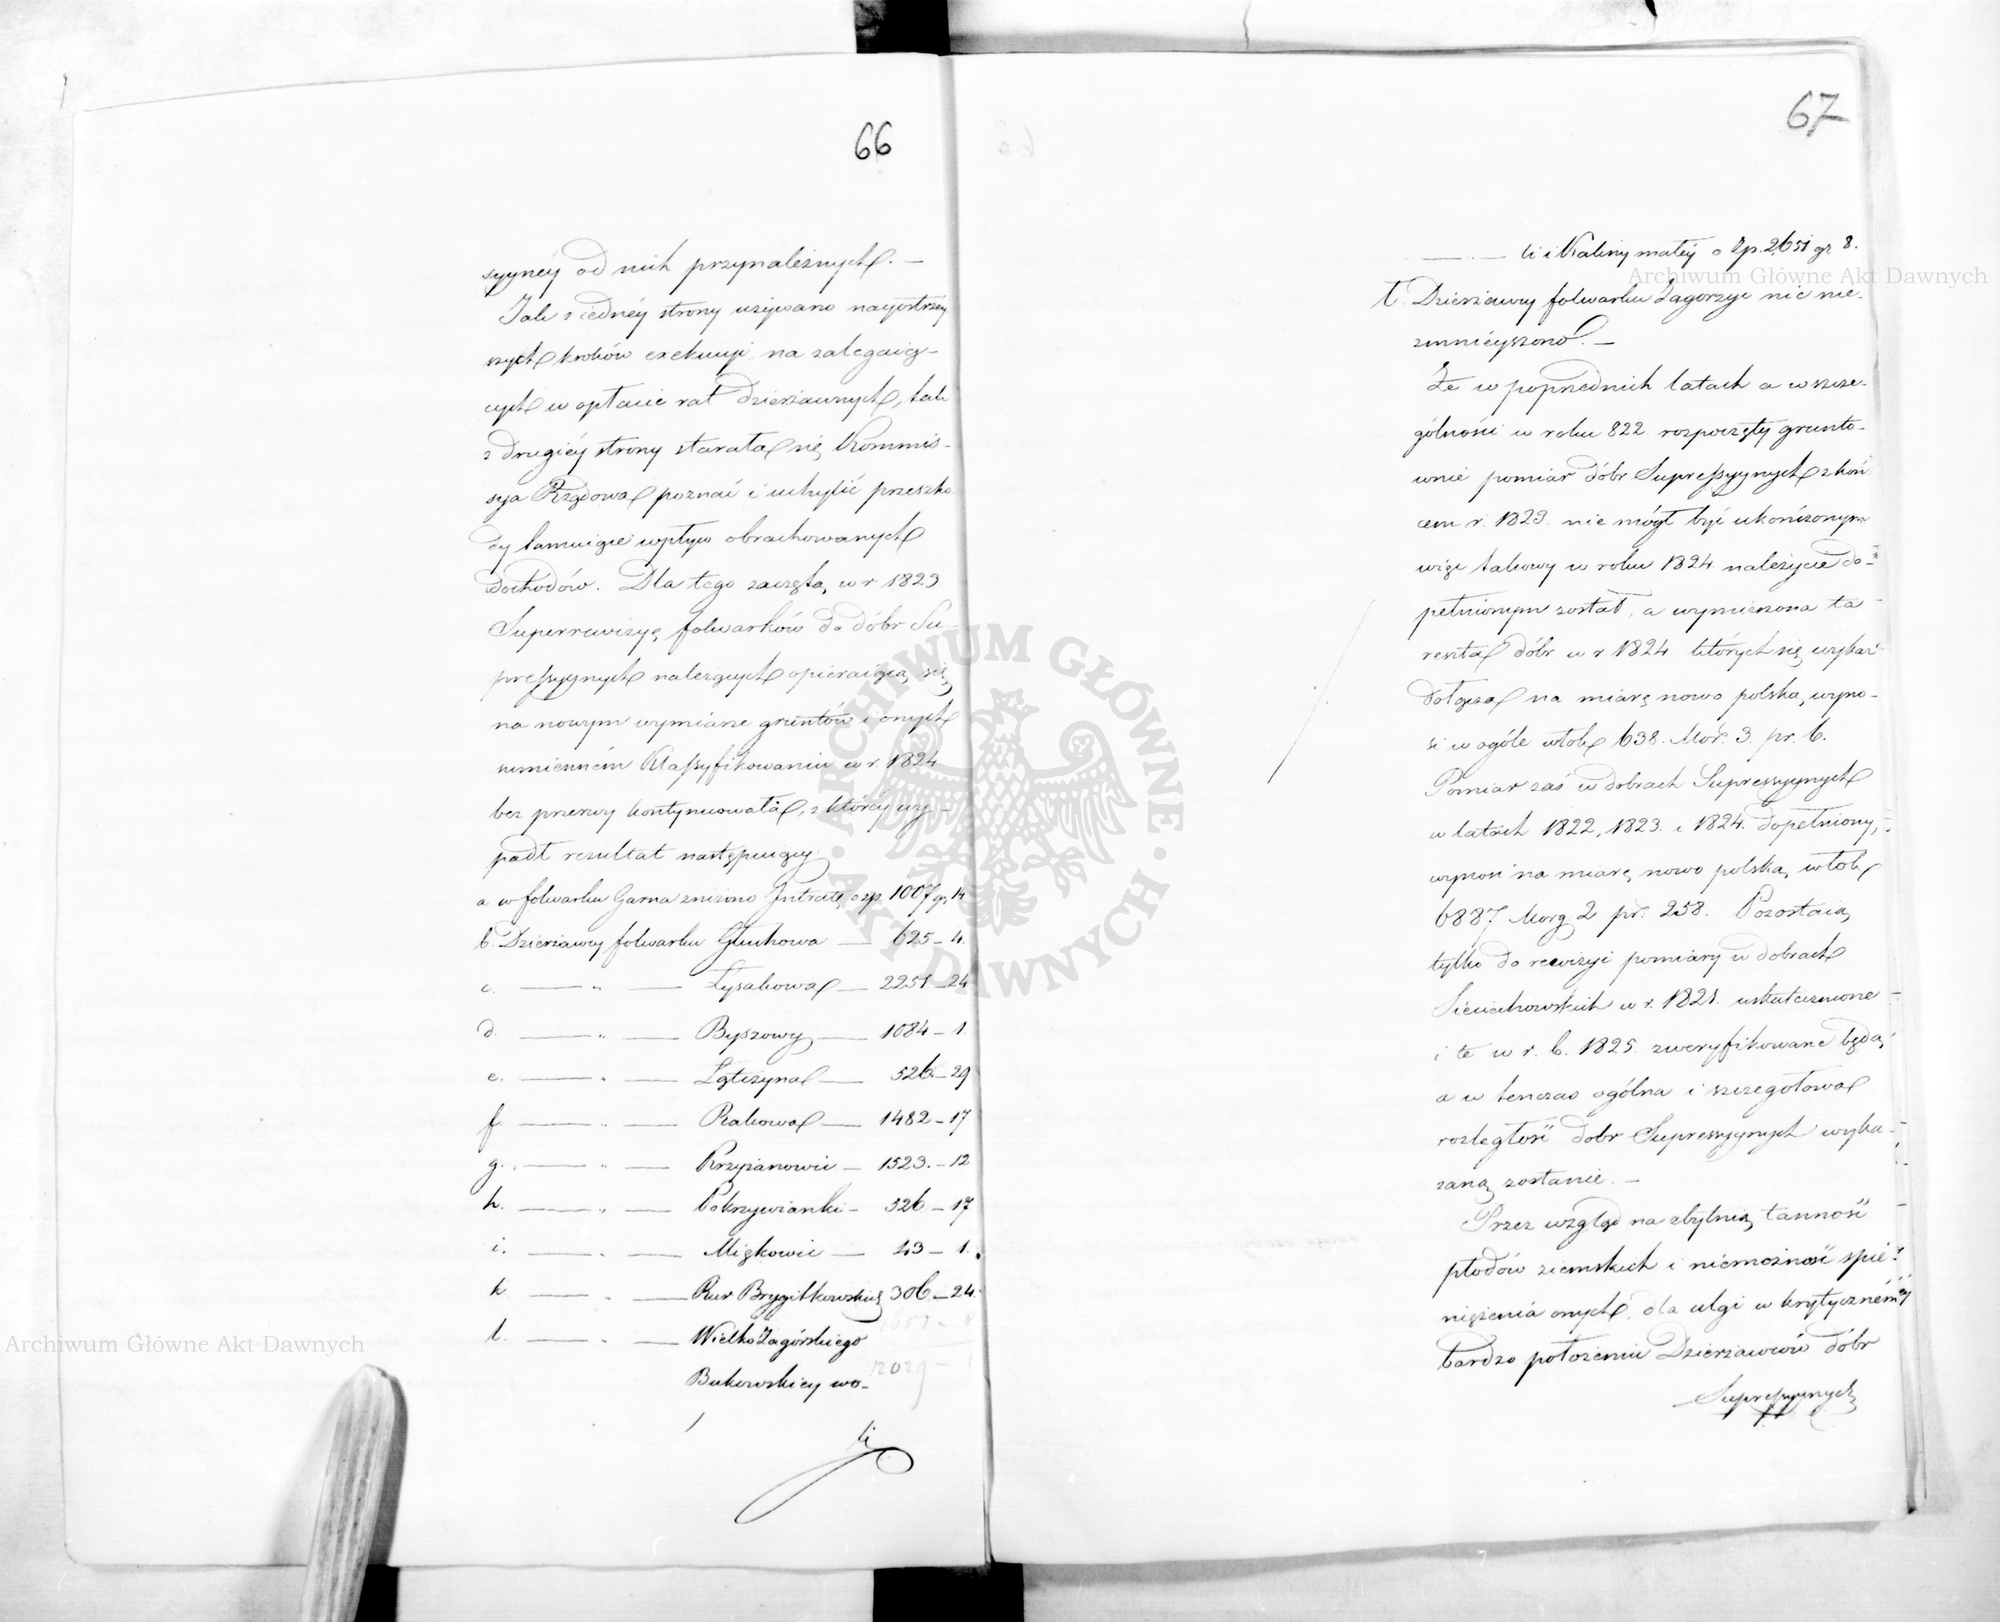 66
syyney od nich przynależnych. —
Jak z iedney strony używano nayostrzey
szych kroków exekucyi na zalegaią-
cych w opłacie rat dzierżawnych, tak
z drugiey strony starała się Kommis-
sya Rządowa poznać i uchylić przeszko
dy tamuiące wpływ obrachowanych
dochodów. Dla tego zaczętą w r 1823
Superrewizyę folwarków do dóbr Su-
pressyynych należących opieraiącą się
na nowym wymiarze gruntów i onych
sumiennem Klassyfikowaniu w r. 1824
bez przerwy kontynuowała, z którey wy-
padł rezultat następuiący.
a w folwarku Garna zniżono Intratę o zp 1007 gr 14
b. Dzierżawcy folwarku Głuchowa — 625 – 4.
c. — „ — Łysakowa — 2251 – 24
d. — „ — Byszowy — 1084 – 1
e. — „ — Łątczyna — 526 – 29
f — „ — Rakowa — 1482 – 17
g. — „ — Krzyżanowic — 1523. – 12
h. — „ — Pokrzywianki – 326 – 17
i. — „ — Miąkowic — 43 – 1.
k — „ — Rur Brygitkowskich 306 – 24.
l. — „ — Wielko Zagórskiego
Bukowskiey wo-
li
67
— — li i Kaliny małey o Zp. 2651 gr 8.
ł. Dzierżawcy folwarku Zagorzyc nic nie-
zmnieyszono. —
Że w poprzednich latach a w szcze-
gólności w roku 822 rozpoczęty grunto-
wnie pomiar dóbr Supressyynych z koń
cem r. 1823. nie mógł być ukończonym
więc takowy w roku 1824 należycie do-
pełnionym został, a wymierzona ta
reszta dóbr w r 1824. których się wykaz
dołącza na miarę nowo polską, wyno-
si w ogóle włók 638. Mor. 3. pr. 6.
Pomiar zaś w dobrach Supressyynych
w latach 1822, 1823. i 1824. dopełniony,
wynosi na miarę nowo polską włók
6887. Morg. 2 pr. 258. Pozostaią
tylko do rewizyi pomiary w dobrach
Sieciechowskich w r. 1821. uskutecznione
i te w r. b. 1825. zweryfikowane będą,
a w tenczas ogólna i szczegółowa
rozległość dóbr Supressyynych wyka-
zaną zostanie. —
Przez wzgląd na zbytnią tanność
płodów ziemskich i niemożność spie-
niężenia onych, dla ulgi w krytyczném
bardzo położeniu Dzierżawców dóbr
Supressyynych
ARCHIWUM GŁÓWNE · AKT DAWNYCH ·
Archiwum Główne Akt Dawnych
Archiwum Główne Akt Dawnych